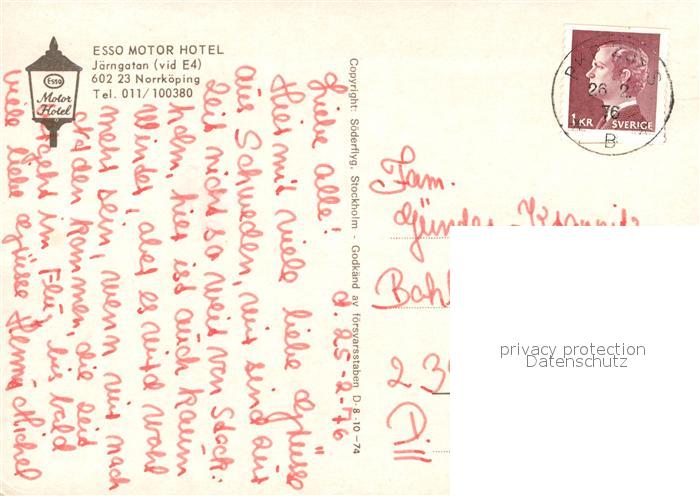 ESSO MOTOR HOTEL
Järngatan (vid E4)
602 23 Norrköping
Tel. 011/100380
Esso
Motor
Hotel
Copyright: Söderflyg, Stockholm - Godkänd av försvarsstaben D-8-10-74
d. 25-2-76
Liebe alle!
Hier mit viele liebe Grüsse
aus Schweden, wir sind zur
Zeit nicht so weit von Stock-
holm, hier ist auch kaum
Winter, aber es wird wohl
mehr sein, wenn wir nach
Norden kommen, die Zeit
geht im Flug, bis bald
viele liebe Grüsse Michel
26 2
76
B
1 KR SVERIGE
Fam.
Günder
Bahl
2 3
Dill
privacy protection
Datenschutz